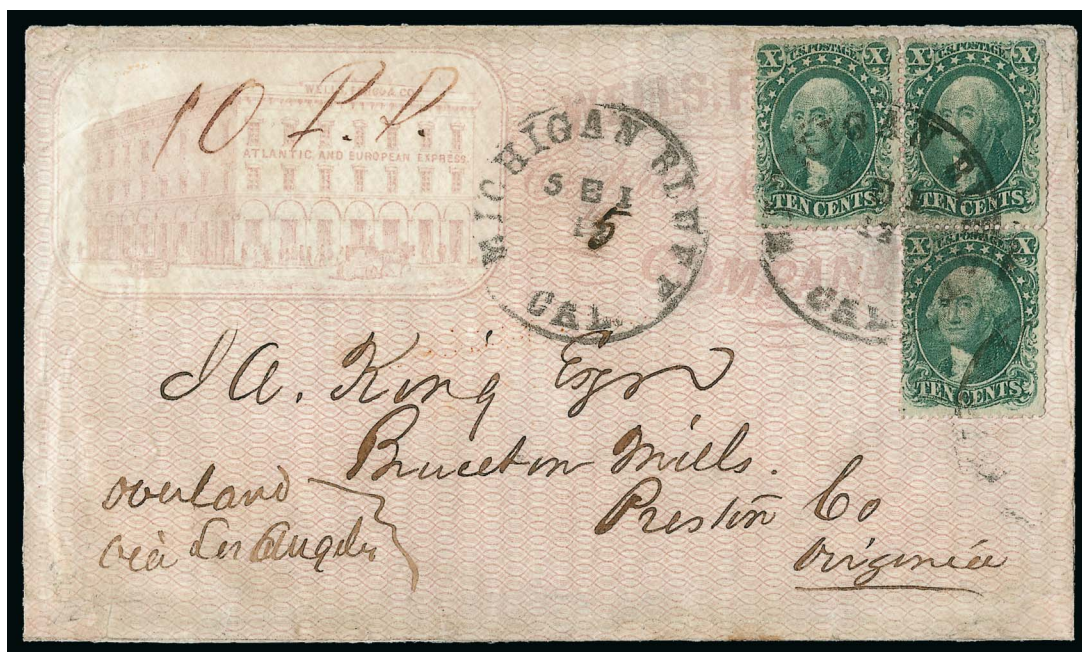 10 P.P.
WELLS
ATLANTIC AND EUROPEAN EXPRESS
MICHIGAN BLUFF
SEP 1
5
CAL.
COMPANY
X U.S. POSTAGE X
TEN CENTS
X U.S. POSTAGE X
TEN CENTS
X U.S. POSTAGE X
TEN CENTS
MICHIGAN
CAL.
J A. King Esqr
Bruceton Mills.
Preston Co
Virginia
overland
via Los Angeles